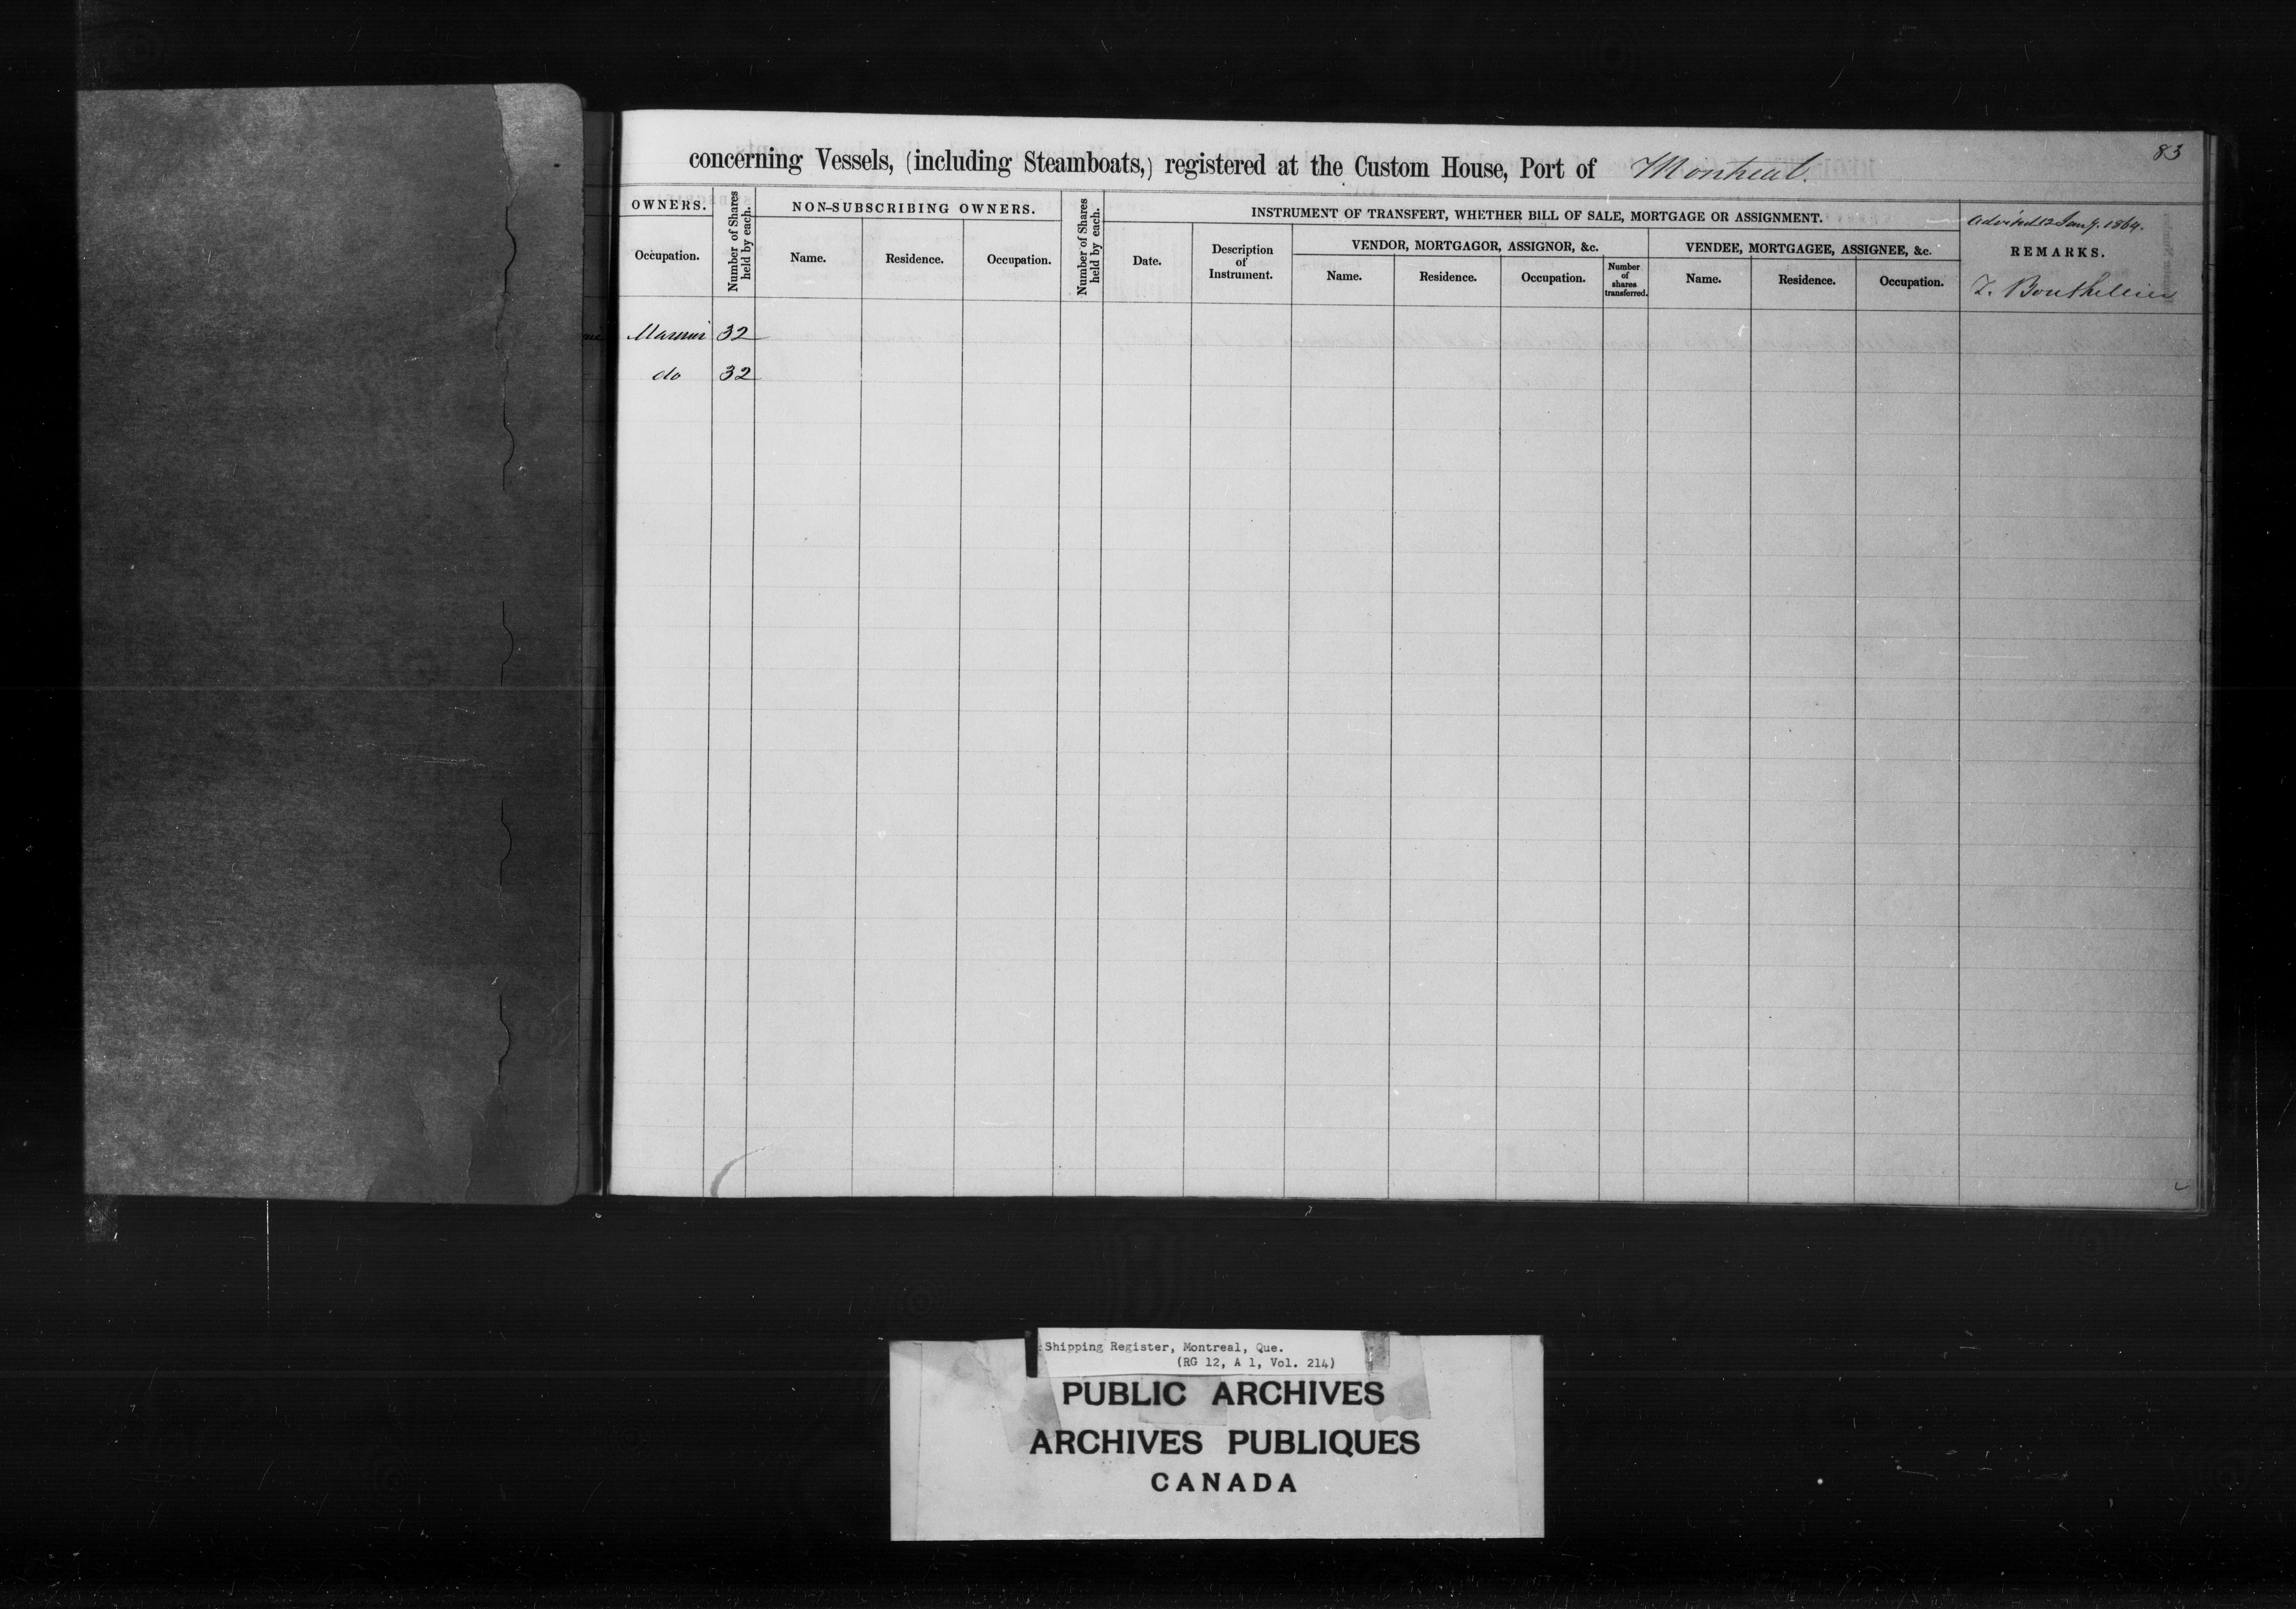 83
concerning Vessels, (including Steamboats,) registered at the Custom House, Port of Montreal.
OWNERS.
Occupation.
Number of Shares held by each.
NON-SUBSCRIBING OWNERS.
Name.
Residence.
Occupation.
Number of Shares held by each.
INSTRUMENT OF TRANSFERT, WHETHER BILL OF SALE, MORTGAGE OR ASSIGNMENT.
Date.
Description
of
Instrument.
VENDOR, MORTGAGOR, ASSIGNOR, &c.
Name.
Residence.
Occupation.
Number
of
shares
transferred.
VENDEE, MORTGAGEE, ASSIGNEE, &c.
Name.
Residence.
Occupation.
Advised 12 Jany. 1864.
REMARKS.
T. Bouthillier
32
do 32
Shipping Register, Montreal, Que.
(RG 12, A 1, Vol. 214)
PUBLIC ARCHIVES
ARCHIVES PUBLIQUES
CANADA